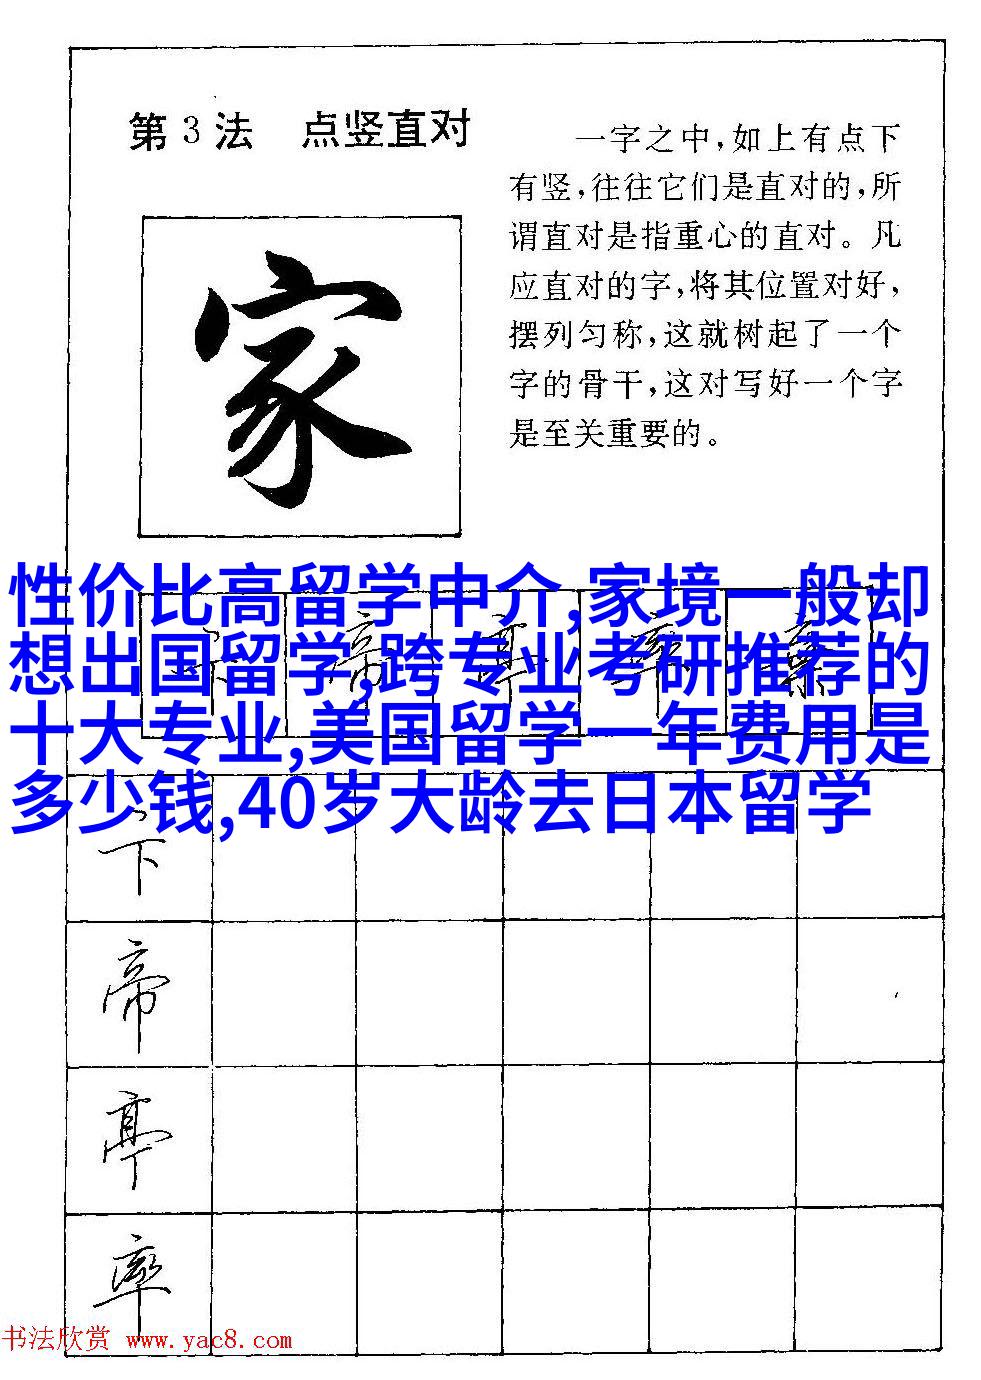 第3法 点竖直对
一字之中,如上有点下
有竖,往往它们是直对的,所
谓直对是指重心的直对。凡
应直对的字,将其位置对好,
摆列匀称,这就树起了一个
字的骨干,这对写好一个字
是至关重要的。
家
性价比高留学中介,家境一般却
想出国留学,跨专业考研推荐的
十大专业,美国留学一年费用是
多少钱,40岁大龄去日本留学
帝
亭
率
书法欣赏 www.yac8.com